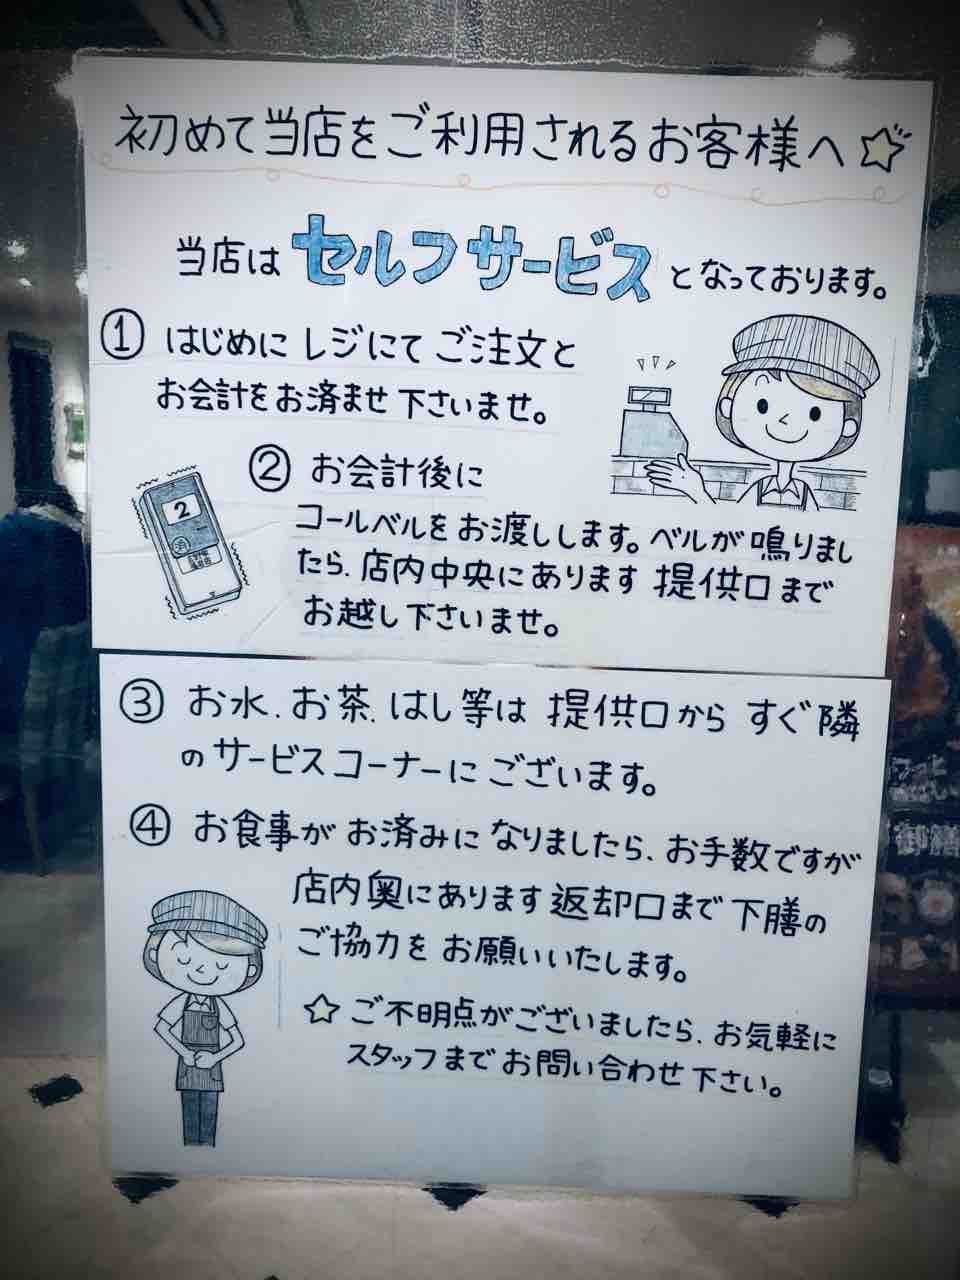 初めて当店をご利用されるお客様へ☆
当店は セルフサービス となっております。
① はじめに レジにて ご注文と
お会計を お済ませ 下さいませ。
② お会計後に
コールベルを お渡しします。ベルが 鳴りまし
たら、店内中央にあります 提供口 まで
お越し下さいませ。
2
③ お水、お茶、はし等は 提供口から すぐ隣
の サービスコーナーに ございます。
④ お食事が お済みに なりましたら、お手数ですが
店内奥にあります 返却口まで 下膳の
ご協力を お願いいたします。
☆ ご不明点がございましたら、お気軽に
スタッフまで お問い合わせ 下さい。
御膳